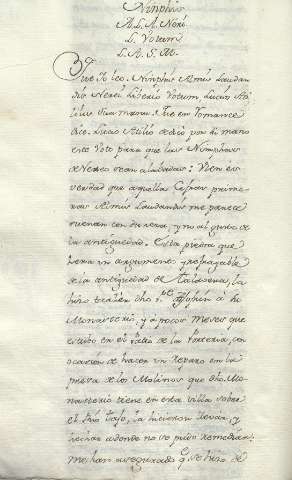 Ninphis
A. L. A. Neri
L. Votum
L. A. S. M.
Que yo leo. Ninphis Almis Laudan
dis Nerei Liberis Votum, Lucius Ati
lius sua manu. Que en Romance
dice. Lucio Atilio dedicó por su mano
este Voto para que las Nimphas
de Nereo sean alabadas: Y bien es
verdad que aquellas primeras
Almis Laudandis me parece
suenan con dureza, y no al gusto de
la antiguedad. Esta piedra que
hera un argumento
de la antiguedad de Talavera, la
hizo traer dho P. a su
Monasterio, y a pocos meses que
estubo en el Patio de la Porteria, con
ocasion de hacer un Reparo en la
presa de los Molinos que dho Mo
nasterio tiene en esta villa sobre
el Rio Tajo, la hicieron llevar, y
hechar adonde no se pudo remediar.
me han asegurado q. se hizo de